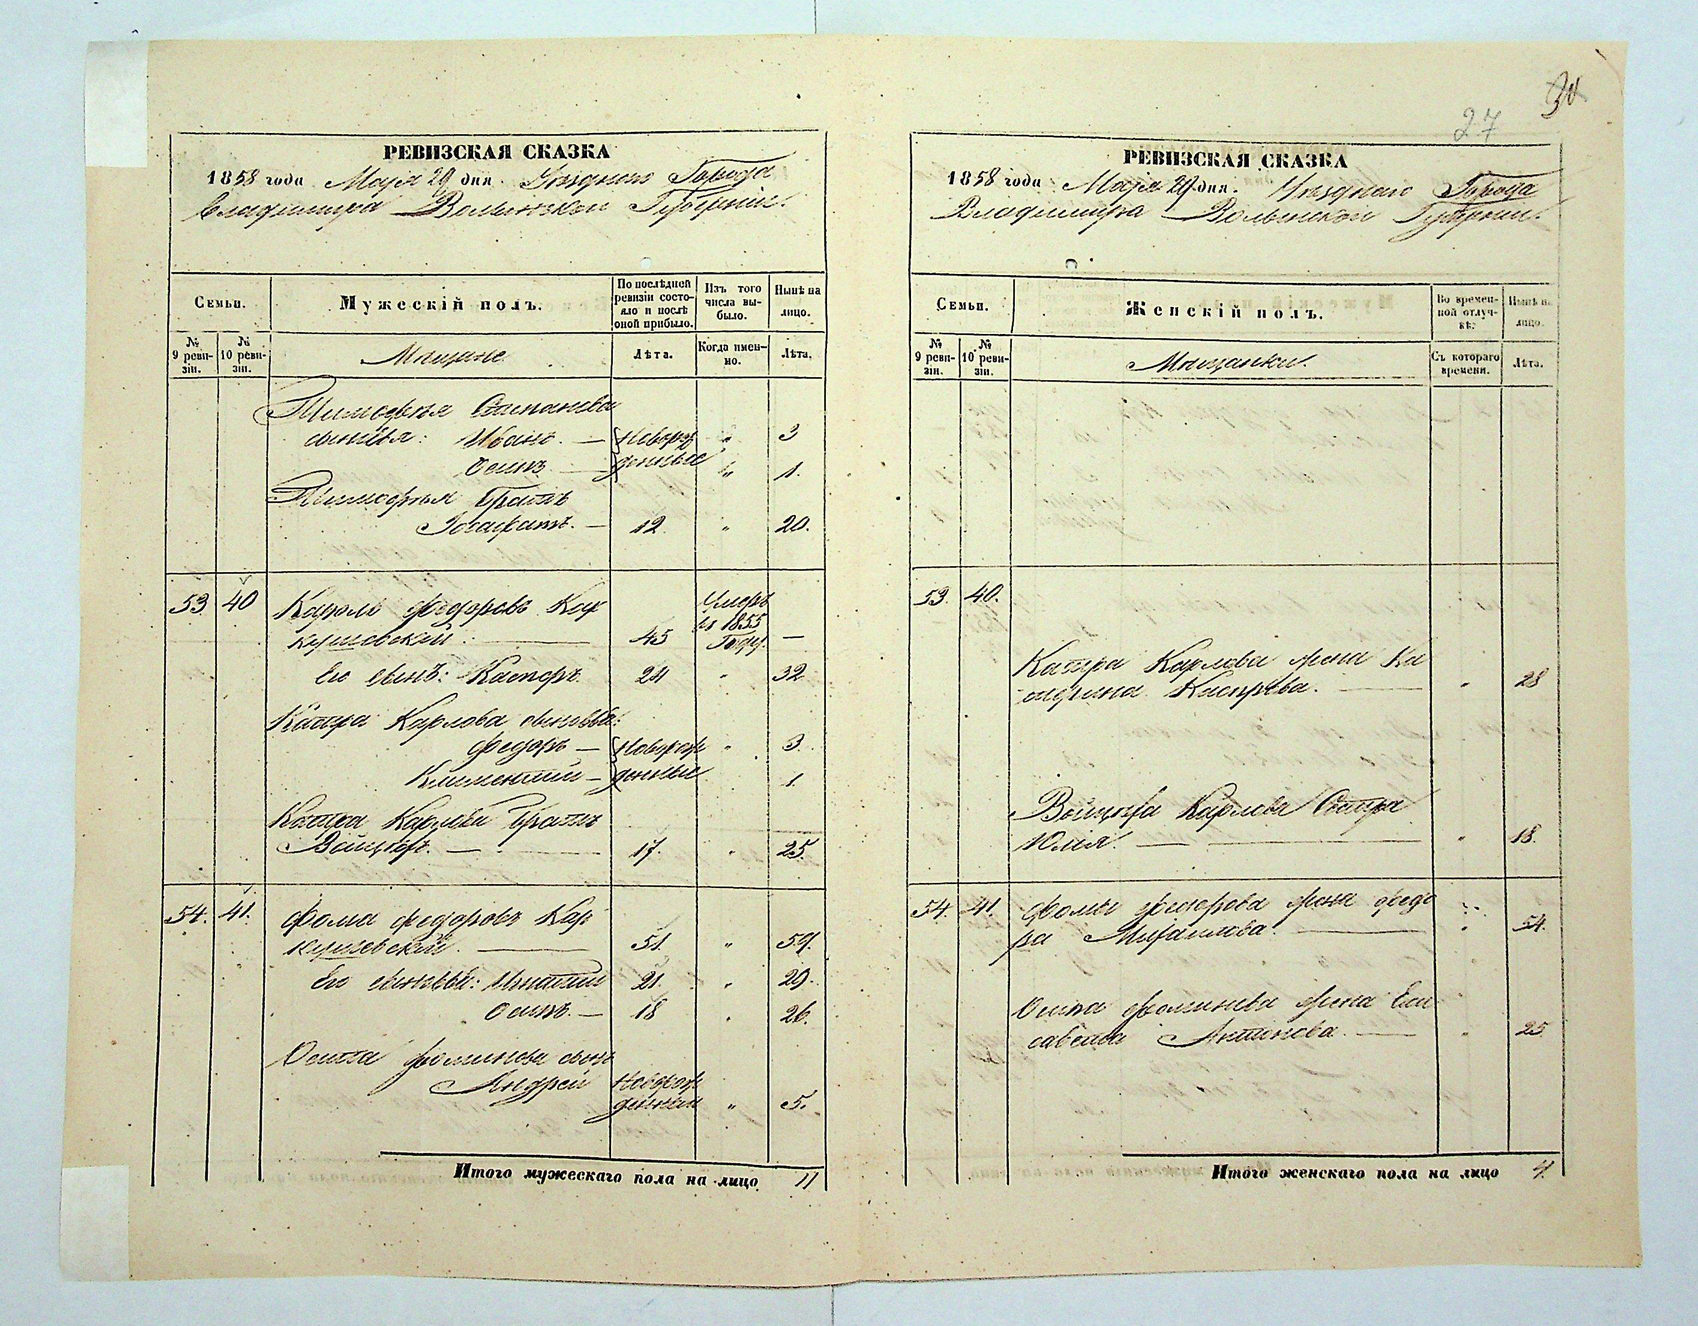 30
27
РЕВИЗСКАЯ СКАЗКА
1858 года Мая 29 дня. Уѣзднаго Города
Владимира Волынской Губерніи.
Семьи.
Мужескій полъ.
По послѣдней ревизіи состояло и послѣ оной прибыло.
Изъ того числа выбыло.
Нынѣ на лицо.
№ 9 ревизіи.
№ 10 ревизіи.
Мѣщане
Лѣта.
Когда именно.
Лѣта.
Тимофея Степанова
сыновья: Иванъ. — Новорож „ 3
Осипъ — денные „ 1.
Тимофея братъ
Іосафатъ. — 12 „ 20.
53. 40 Кароль Федоровъ Кар Умеръ
въ 1855
45 Году. —
Его сынъ: Касперъ 24 „ 32
Каспра Карлова сыновья:
Федоръ — Новорож „ 3.
Климентій — денные 1.
Каспра Карлова братъ
Войцехъ. — 17. „ 25.
54. 41. Фома Федоровъ Кар
51. „ 59.
Его сыновья: Игнатій 21. „ 29.
Осипъ. — 18 „ 26.
Осипа Фомина сынъ
Андрей Новорож
денный „ 5.
Итого мужескаго пола на лицо 11
РЕВИЗСКАЯ СКАЗКА
1858 года Мая 29 дня. Уѣзднаго Города
Владимира Волынской Губерніи.
Семьи.
Женскій полъ.
Во временной отлучкѣ:
Нынѣ на лицо.
№ 9 ревизіи.
№ 10 ревизіи.
Мѣщанки.
Съ котораго времени.
Лѣта.
53. 40.
Каспра Карлова жена
„ 28
Войцеха Карлова Сестра
Юлія. — „ 18.
54. 41. Фомы Федорова жена Федо
ра Михайлова. — „ 54.
Осипа Фомина жена Ели
савета Антонова. — „ 25
Итого женскаго пола на лицо 4.